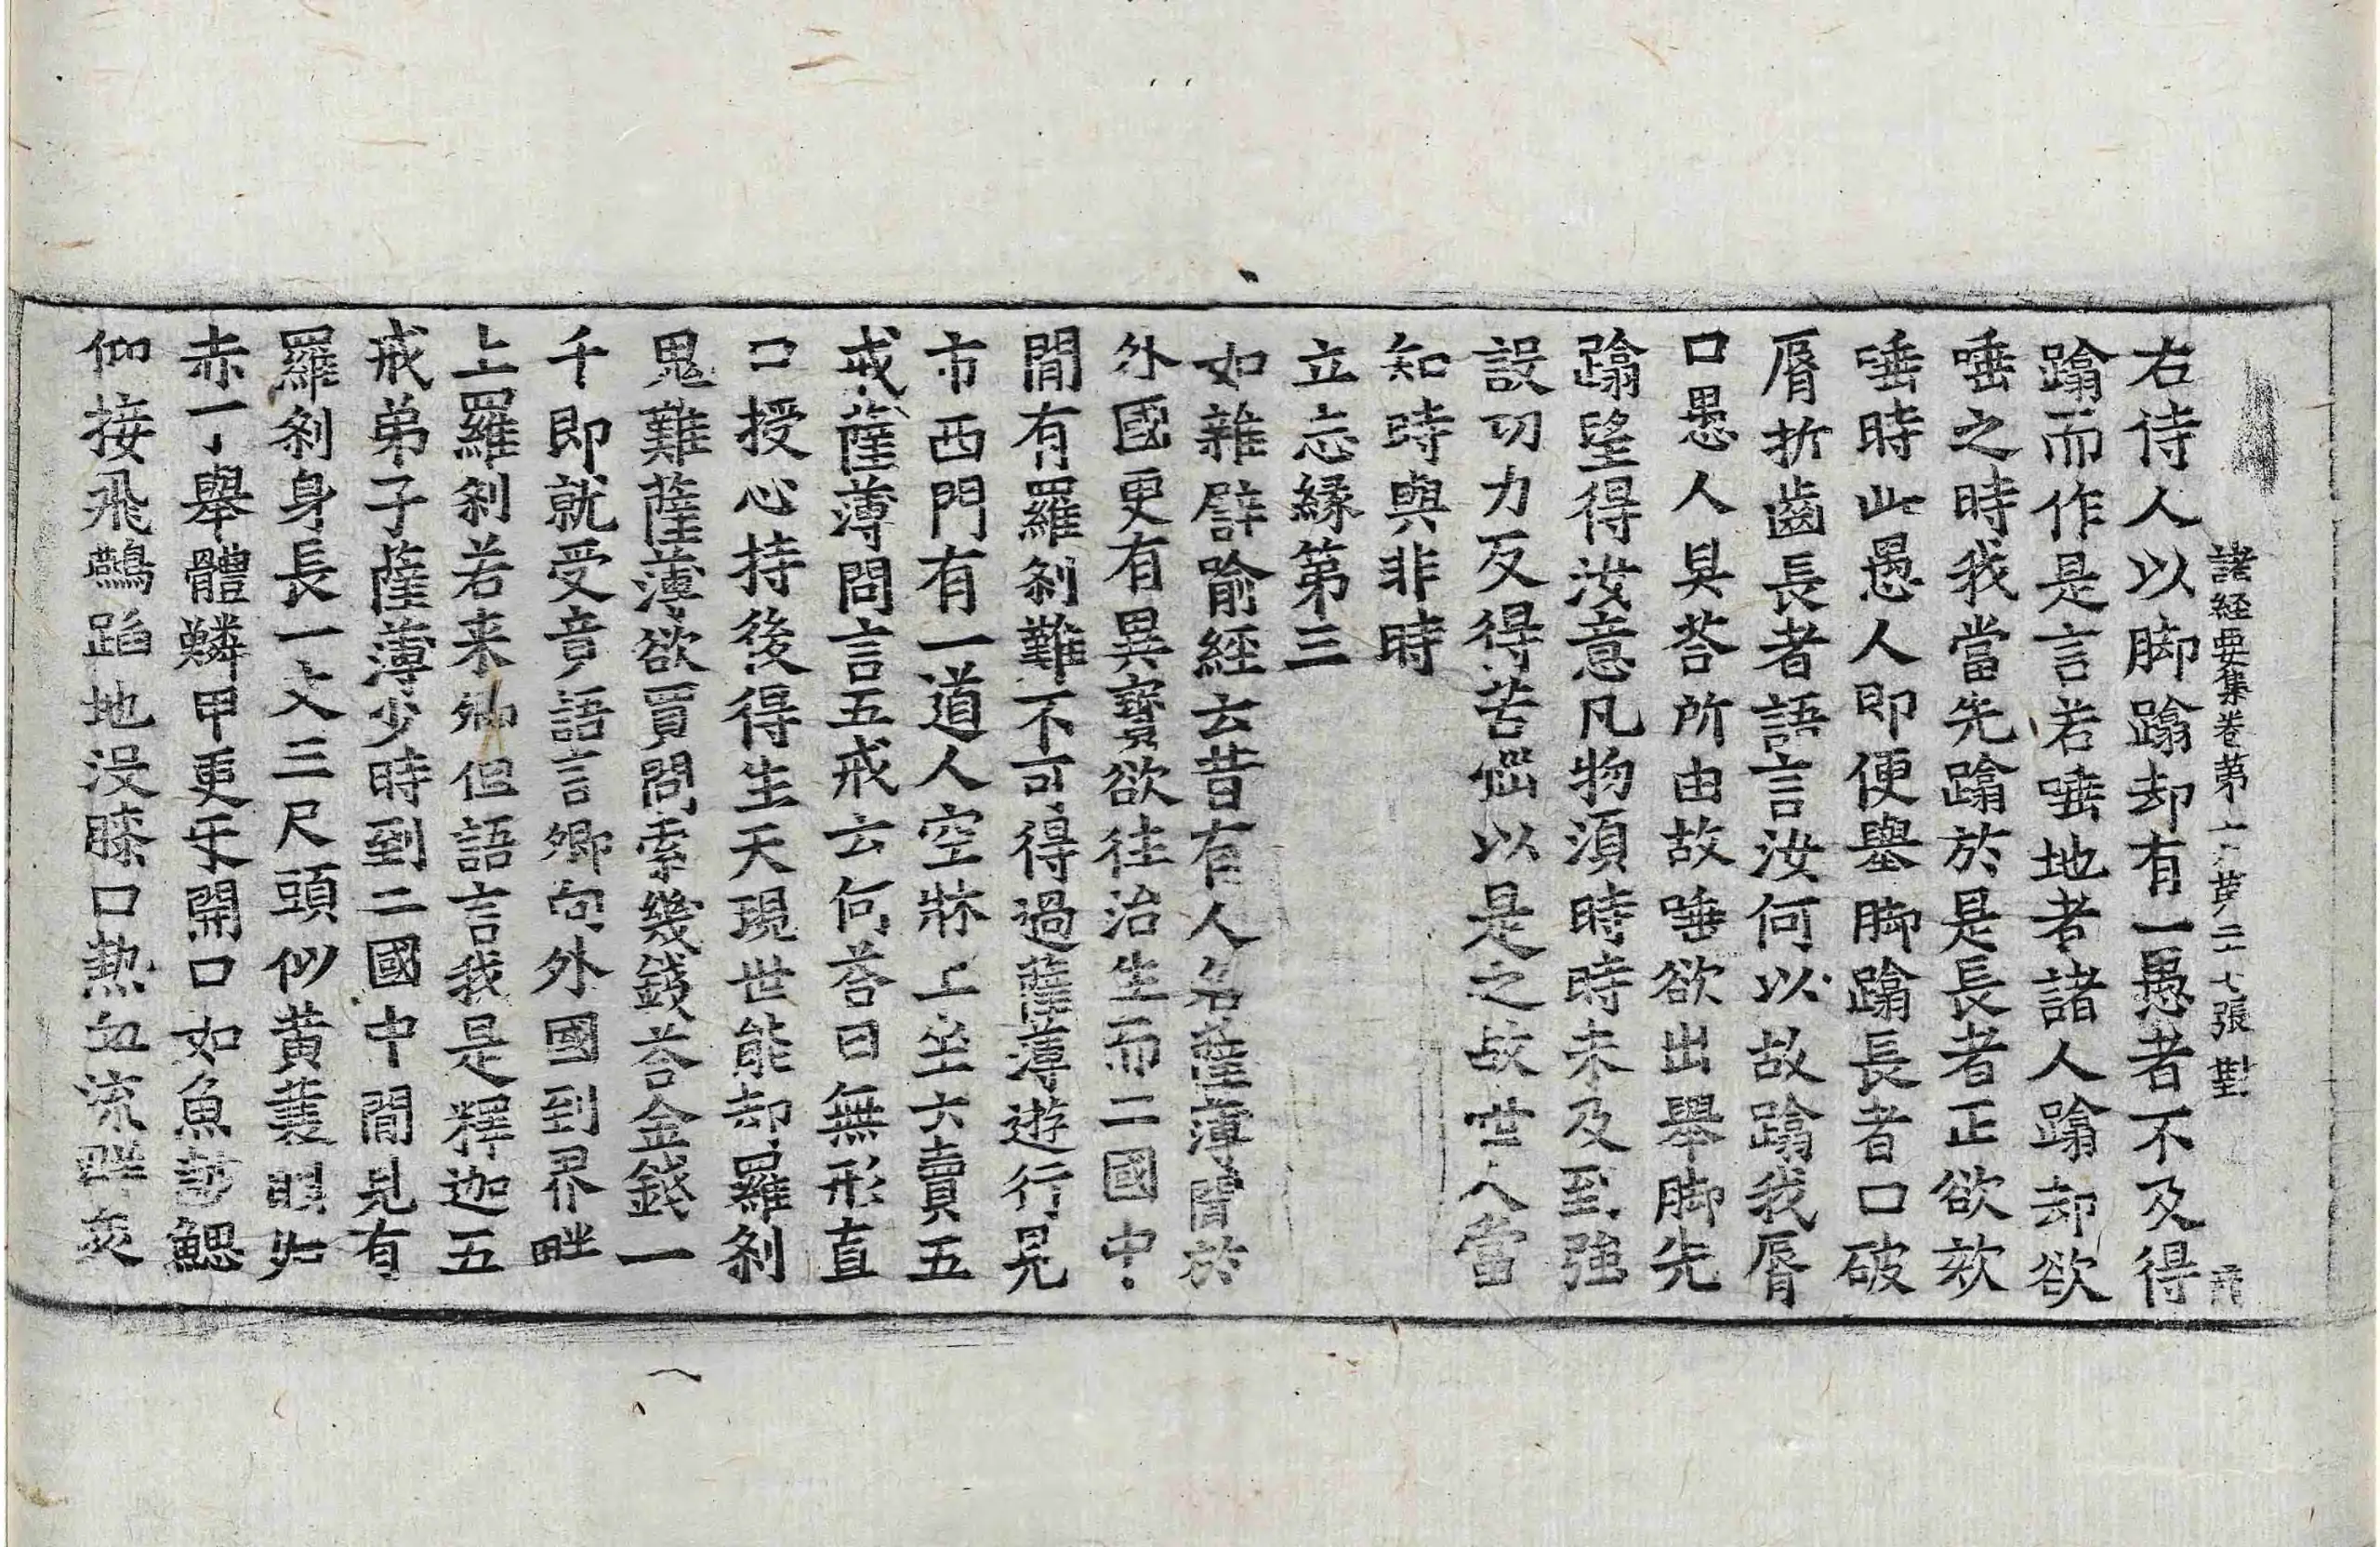 諸経要集卷第六 第二十七張 對
右侍人以脚蹋却有一愚者不及得
蹋而作是言若唾地者諸人蹋却欲
唾之時我當先蹋於是長者正欲欬
唾時此愚人即便舉脚蹋長者口破
脣折齒長者語言汝何以故蹋我脣
口愚人具荅所由故唾欲出舉脚先
蹋望得汝意凡物須時時未及到強
設功力反得苦惱以是之故世人當
知時與非時
立志緣第三
如雜譬喻經云昔有人名薩薄聞於
外國更有異寶欲往治生而二國中
間有羅剎難不可得過薩薄遊行見
市西門有一道人空牀上坐云賣五
戒薩薄問言五戒云何荅曰無形直
口授心持後得生天現世能却羅剎
鬼難薩薄欲買問索幾錢荅金錢一
千即就受竟語言卿向外國到界畔
上羅剎若来卿但語言我是釋迦五
戒弟子薩薄少時到二國中間見有
羅剎身長一丈三尺頭似黄蓑眼如
赤丁舉體鱗甲更牙開口如魚鼓鰓
仰接飛鷰蹈地没膝口熱血流群衆